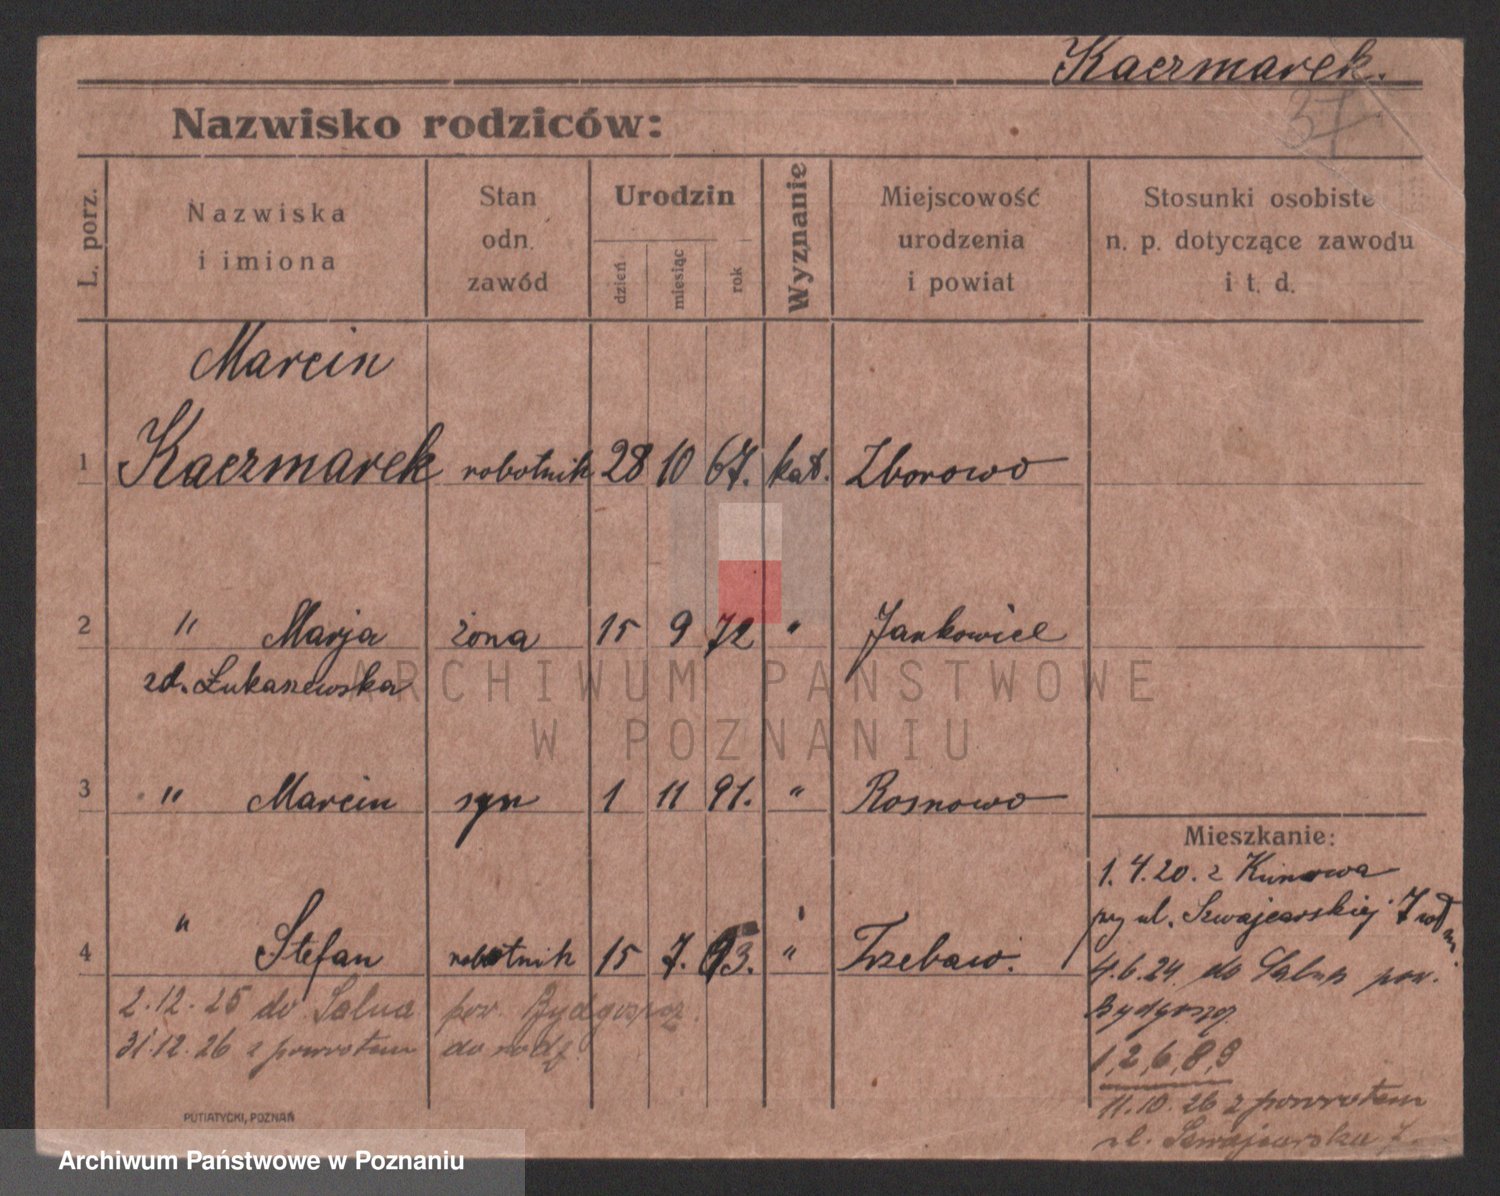 Kaczmarek.
37
Nazwisko rodziców:
L. porz.
Nazwiska i imiona
Stan odn. zawód
Urodzin
dzień
miesiąc
rok
Wyznanie
Miejscowość urodzenia i powiat
Stosunki osobiste n. p. dotyczące zawodu i t. d.
Marcin
1 Kaczmarek robotnik 28 10 67. kat. Zborowo
2 " Marja żona 15 9 72 " Jankowice
zd. Łukaszewska
ARCHIWUM PAŃSTWOWE
W POZNANIU
3 " Marcin syn 1 11 91. " Rosnowo
4 " Stefan robotnik 15 7. 93. " Trzebaw.
2.12.25 do Salna pow. Bydgoszcz.
31.12.26 z powrotem do rodz.
Mieszkanie:
1.4.20. z Kunowa
przy ul. Szwajcarskiej 7
4.6.24. do Salna pow.
Bydgoszcz.
1,2,6,8,9
11.10.26 z powrotem
ul. Szwajcarska 7.
PUTIATYCKI, POZNAŃ
Archiwum Państwowe w Poznaniu